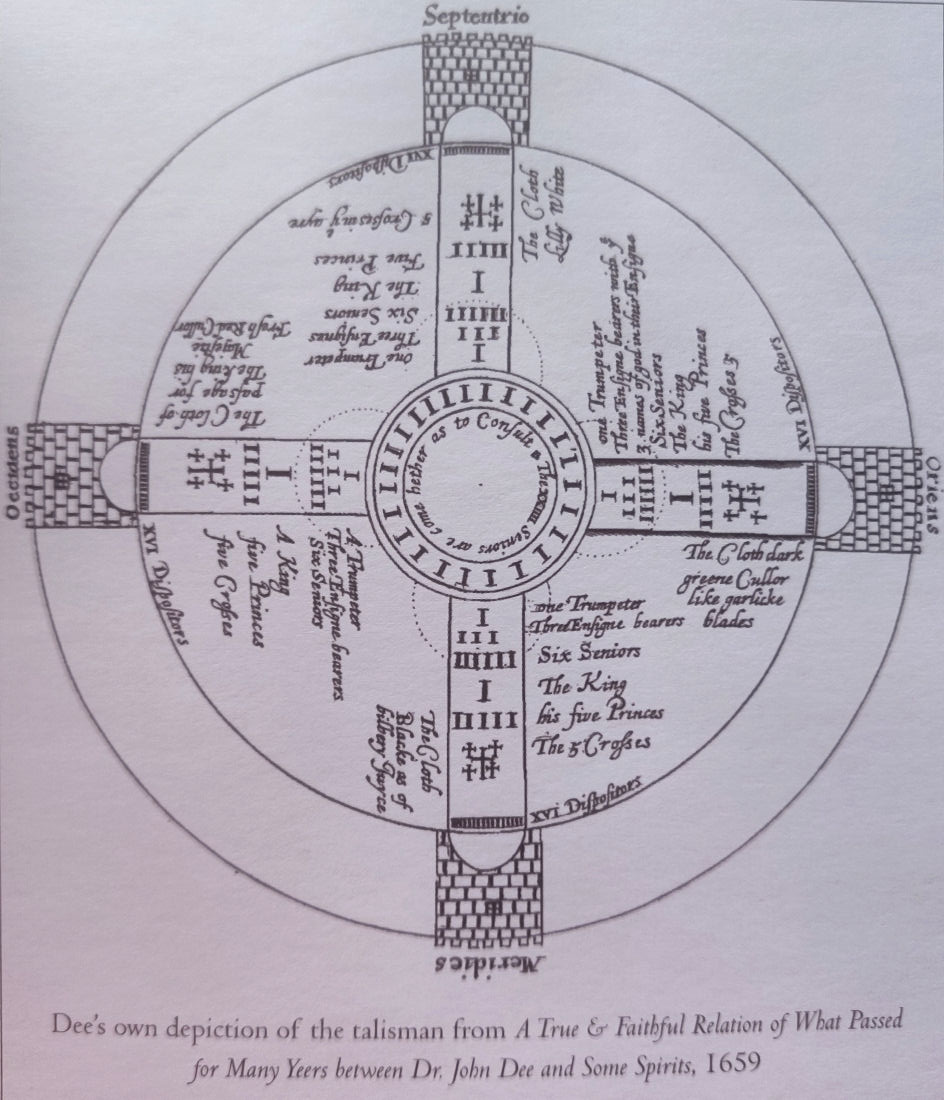 Septentrio
XVI Dispositors
5 Crosses in ayre
Five Princes
The King
Six Seniors
Three Ensignes
one Trumpeter
The Cloth
Lilly White
one Trumpeter
Three Ensigne bearers with ye
3 names of god in their Ensigne
Six Seniors
The King
his five Princes
The Crosses
XVI Dispositors
Oriens
The Cloth dark
greene Cullor
like garlicke
blades
one Trumpeter
Three Ensigne bearers
Six Seniors
The King
his five Princes
The 5 Crosses
XVI Dispositors
Meridies
The Cloth
Blacke as of
bilbery Juyce
A Trumpeter
Three Ensigne bearers
Six Seniors
A King
five Princes
five Crosses
XVI Dispositors
Occidens
The Cloth of
passage for
The King his
Majestie
Fresh Red Cullor
The xxiiii Seniors are come hether as to Consult
Dee's own depiction of the talisman from A True & Faithful Relation of What Passed
for Many Yeers between Dr. John Dee and Some Spirits, 1659